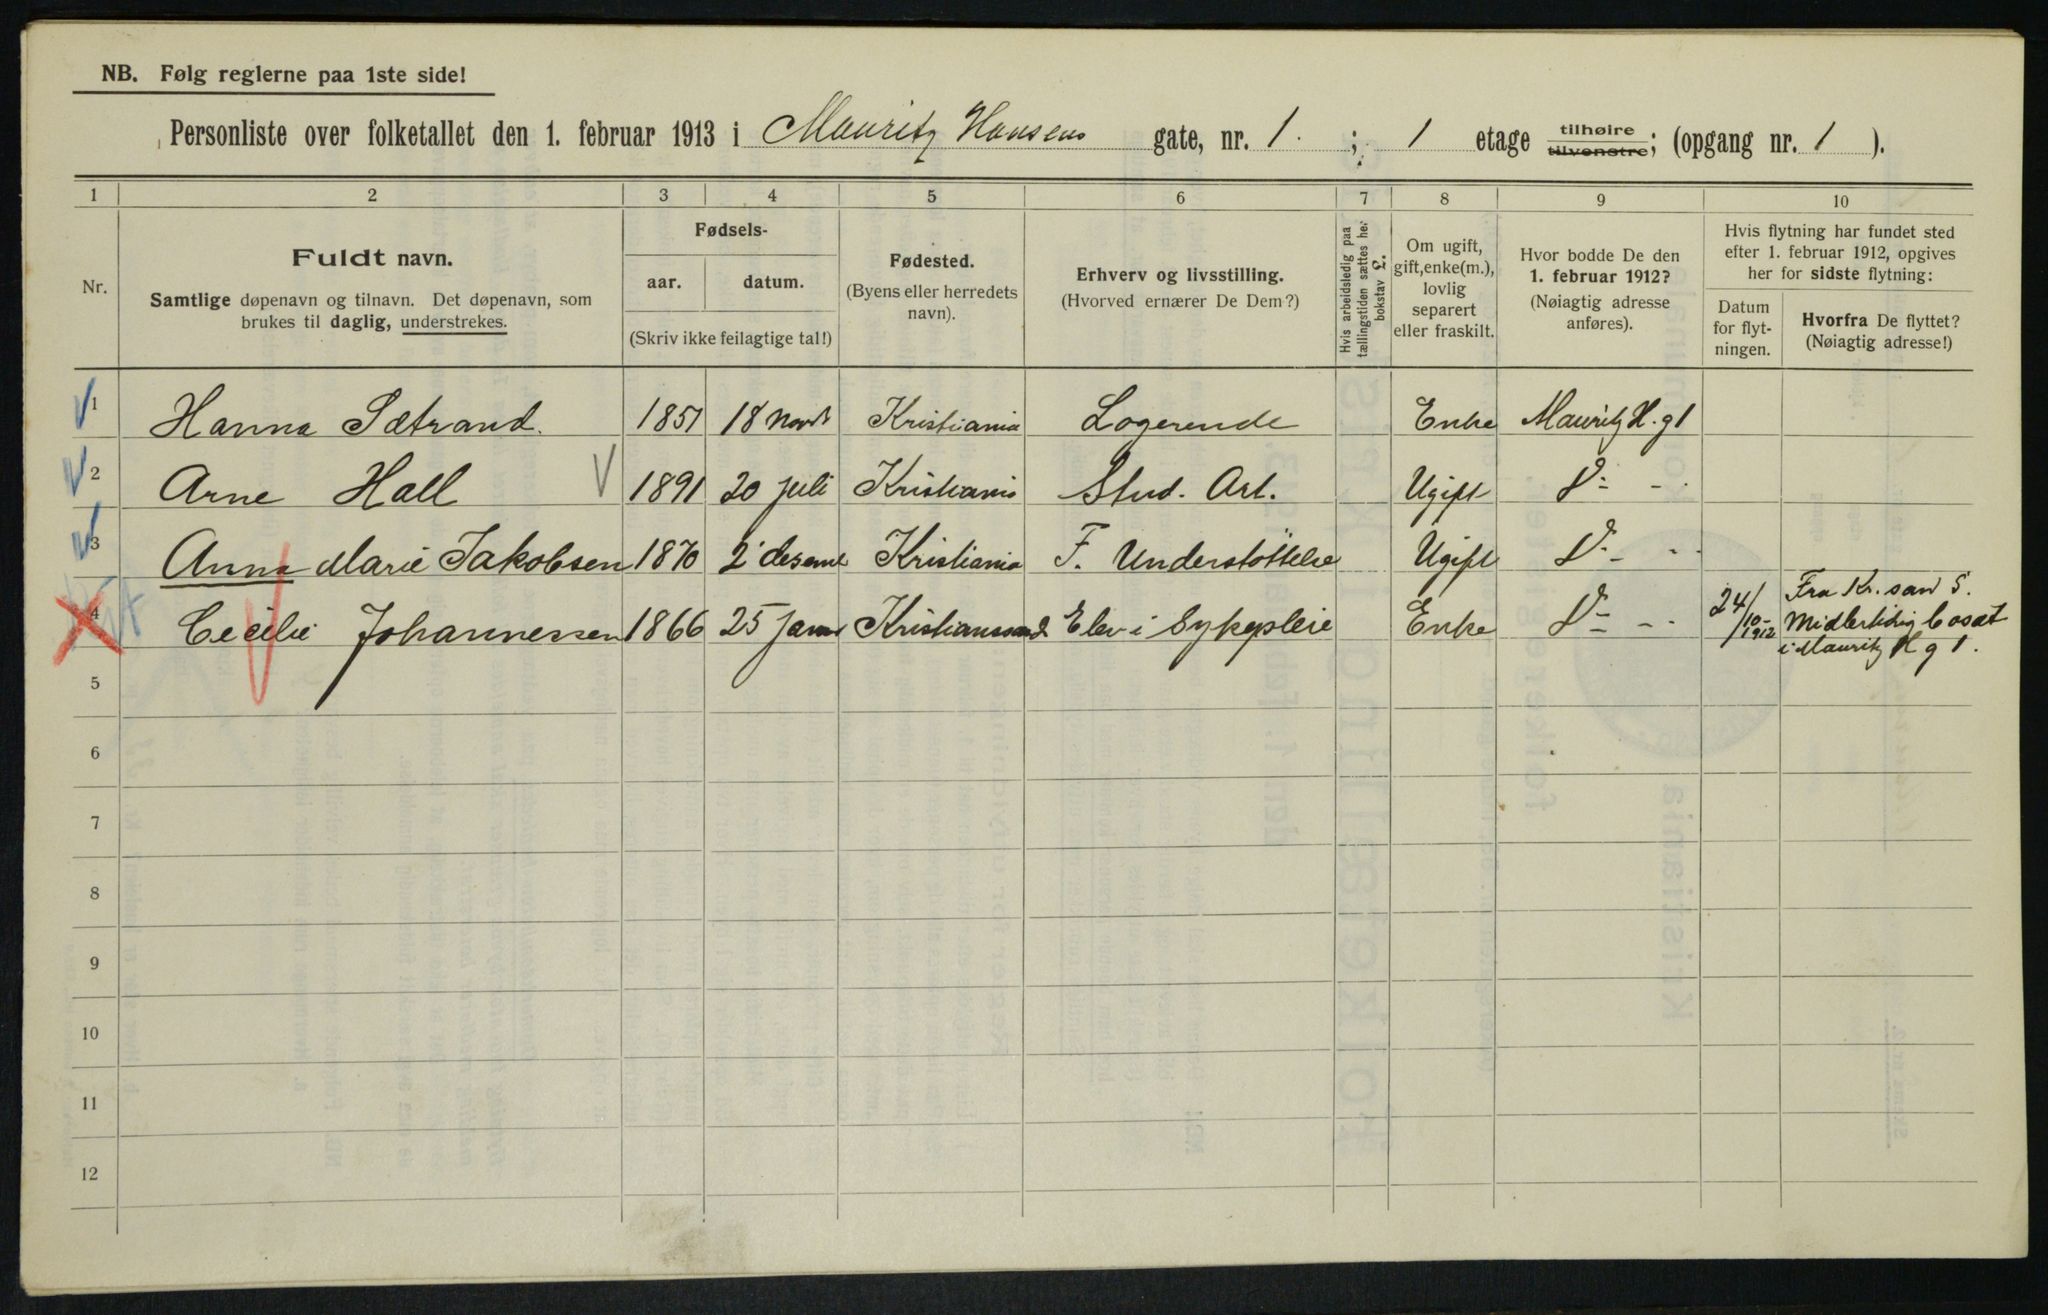 NB. Følg reglerne paa 1ste side!
Personliste over folketallet den 1. februar 1913 i Mauritz Hansens gate, nr. 1. ; 1 etage tilhøire tilvenstre; (opgang nr. 1 ).
1 2 3 4 5 6 7 8 9 10
Nr.
Fuldt navn.
Samtlige døpenavn og tilnavn. Det døpenavn, som
brukes til daglig, understrekes.
Fødsels-
aar. datum.
(Skriv ikke feilagtige tal!)
Fødested.
(Byens eller herredets
navn).
Erhverv og livsstilling.
(Hvorved ernærer De Dem?)
Hvis arbeidsledig paa
tællingstiden sættes her
bokstav L.
Om ugift,
gift, enke(m.),
lovlig
separert
eller fraskilt.
Hvor bodde De den
1. februar 1912?
(Nøiagtig adresse
anføres).
Hvis flytning har fundet sted
efter 1. februar 1912, opgives
her for sidste flytning:
Datum
for flyt-
ningen.
Hvorfra De flyttet?
(Nøiagtig adresse!)
1 Hanna Sætrand. 1851 18 Novbr Kristiania Logerende Enke Mauritz H. g 1
2 Arne Hall 1891 20 juli Kristiania Stud. Art. Ugift D: - -
3 Anna Marie Jakobsen 1870 2 desemb Kristiania F. Understöttelse Ugift D - - -
4 Cecilie Johannessen 1866 25 Janr Kristianssand Elev i Sykepleie Enke D - - - 24/10-1912 Fra Kr. sand S.
Midlertidig bosat
i Mauritz H g 1.
5
6
7
8
9
10
11
12